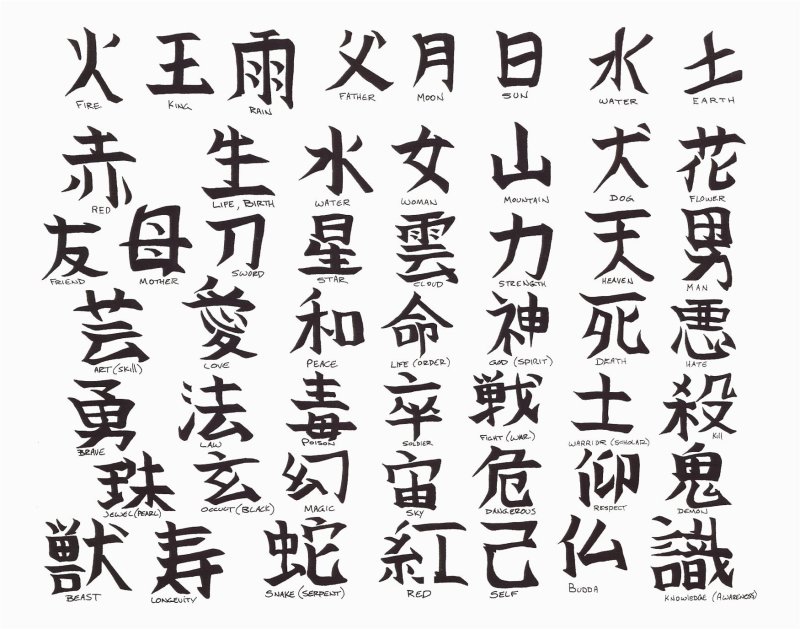 火 王 雨 父 月 日 水 土
FIRE KING RAIN FATHER MOON SUN WATER EARTH
赤 生 水 女 山 犬 花
RED LIFE, BIRTH WATER WOMAN MOUNTAIN DOG FLOWER
友 母 刀 星 雲 力 天 男
FRIEND MOTHER SWORD STAR CLOUD STRENGTH HEAVEN MAN
芸 愛 和 命 神 死 悪
ART (SKILL) LOVE PEACE LIFE (ORDER) GOD (SPIRIT) DEATH HATE
勇 法 毒 卒 戦 士 殺
BRAVE LAW POISON SOLDIER FIGHT (WAR) WARRIOR (SCHOLAR) KILL
珠 玄 幻 宙 危 仰 鬼
JEWEL (PEARL) OCCULT (BLACK) MAGIC SKY DANGEROUS RESPECT DEMON
獣 寿 蛇 紅 己 仏 識
BEAST LONGEVITY SNAKE (SERPENT) RED SELF BUDDA KNOWLEDGE (AWARENESS)